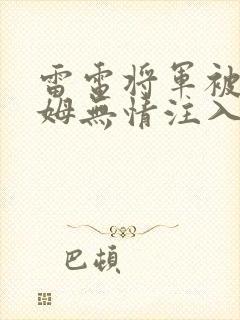 雷電将軍被
姆無情注入
巴頓